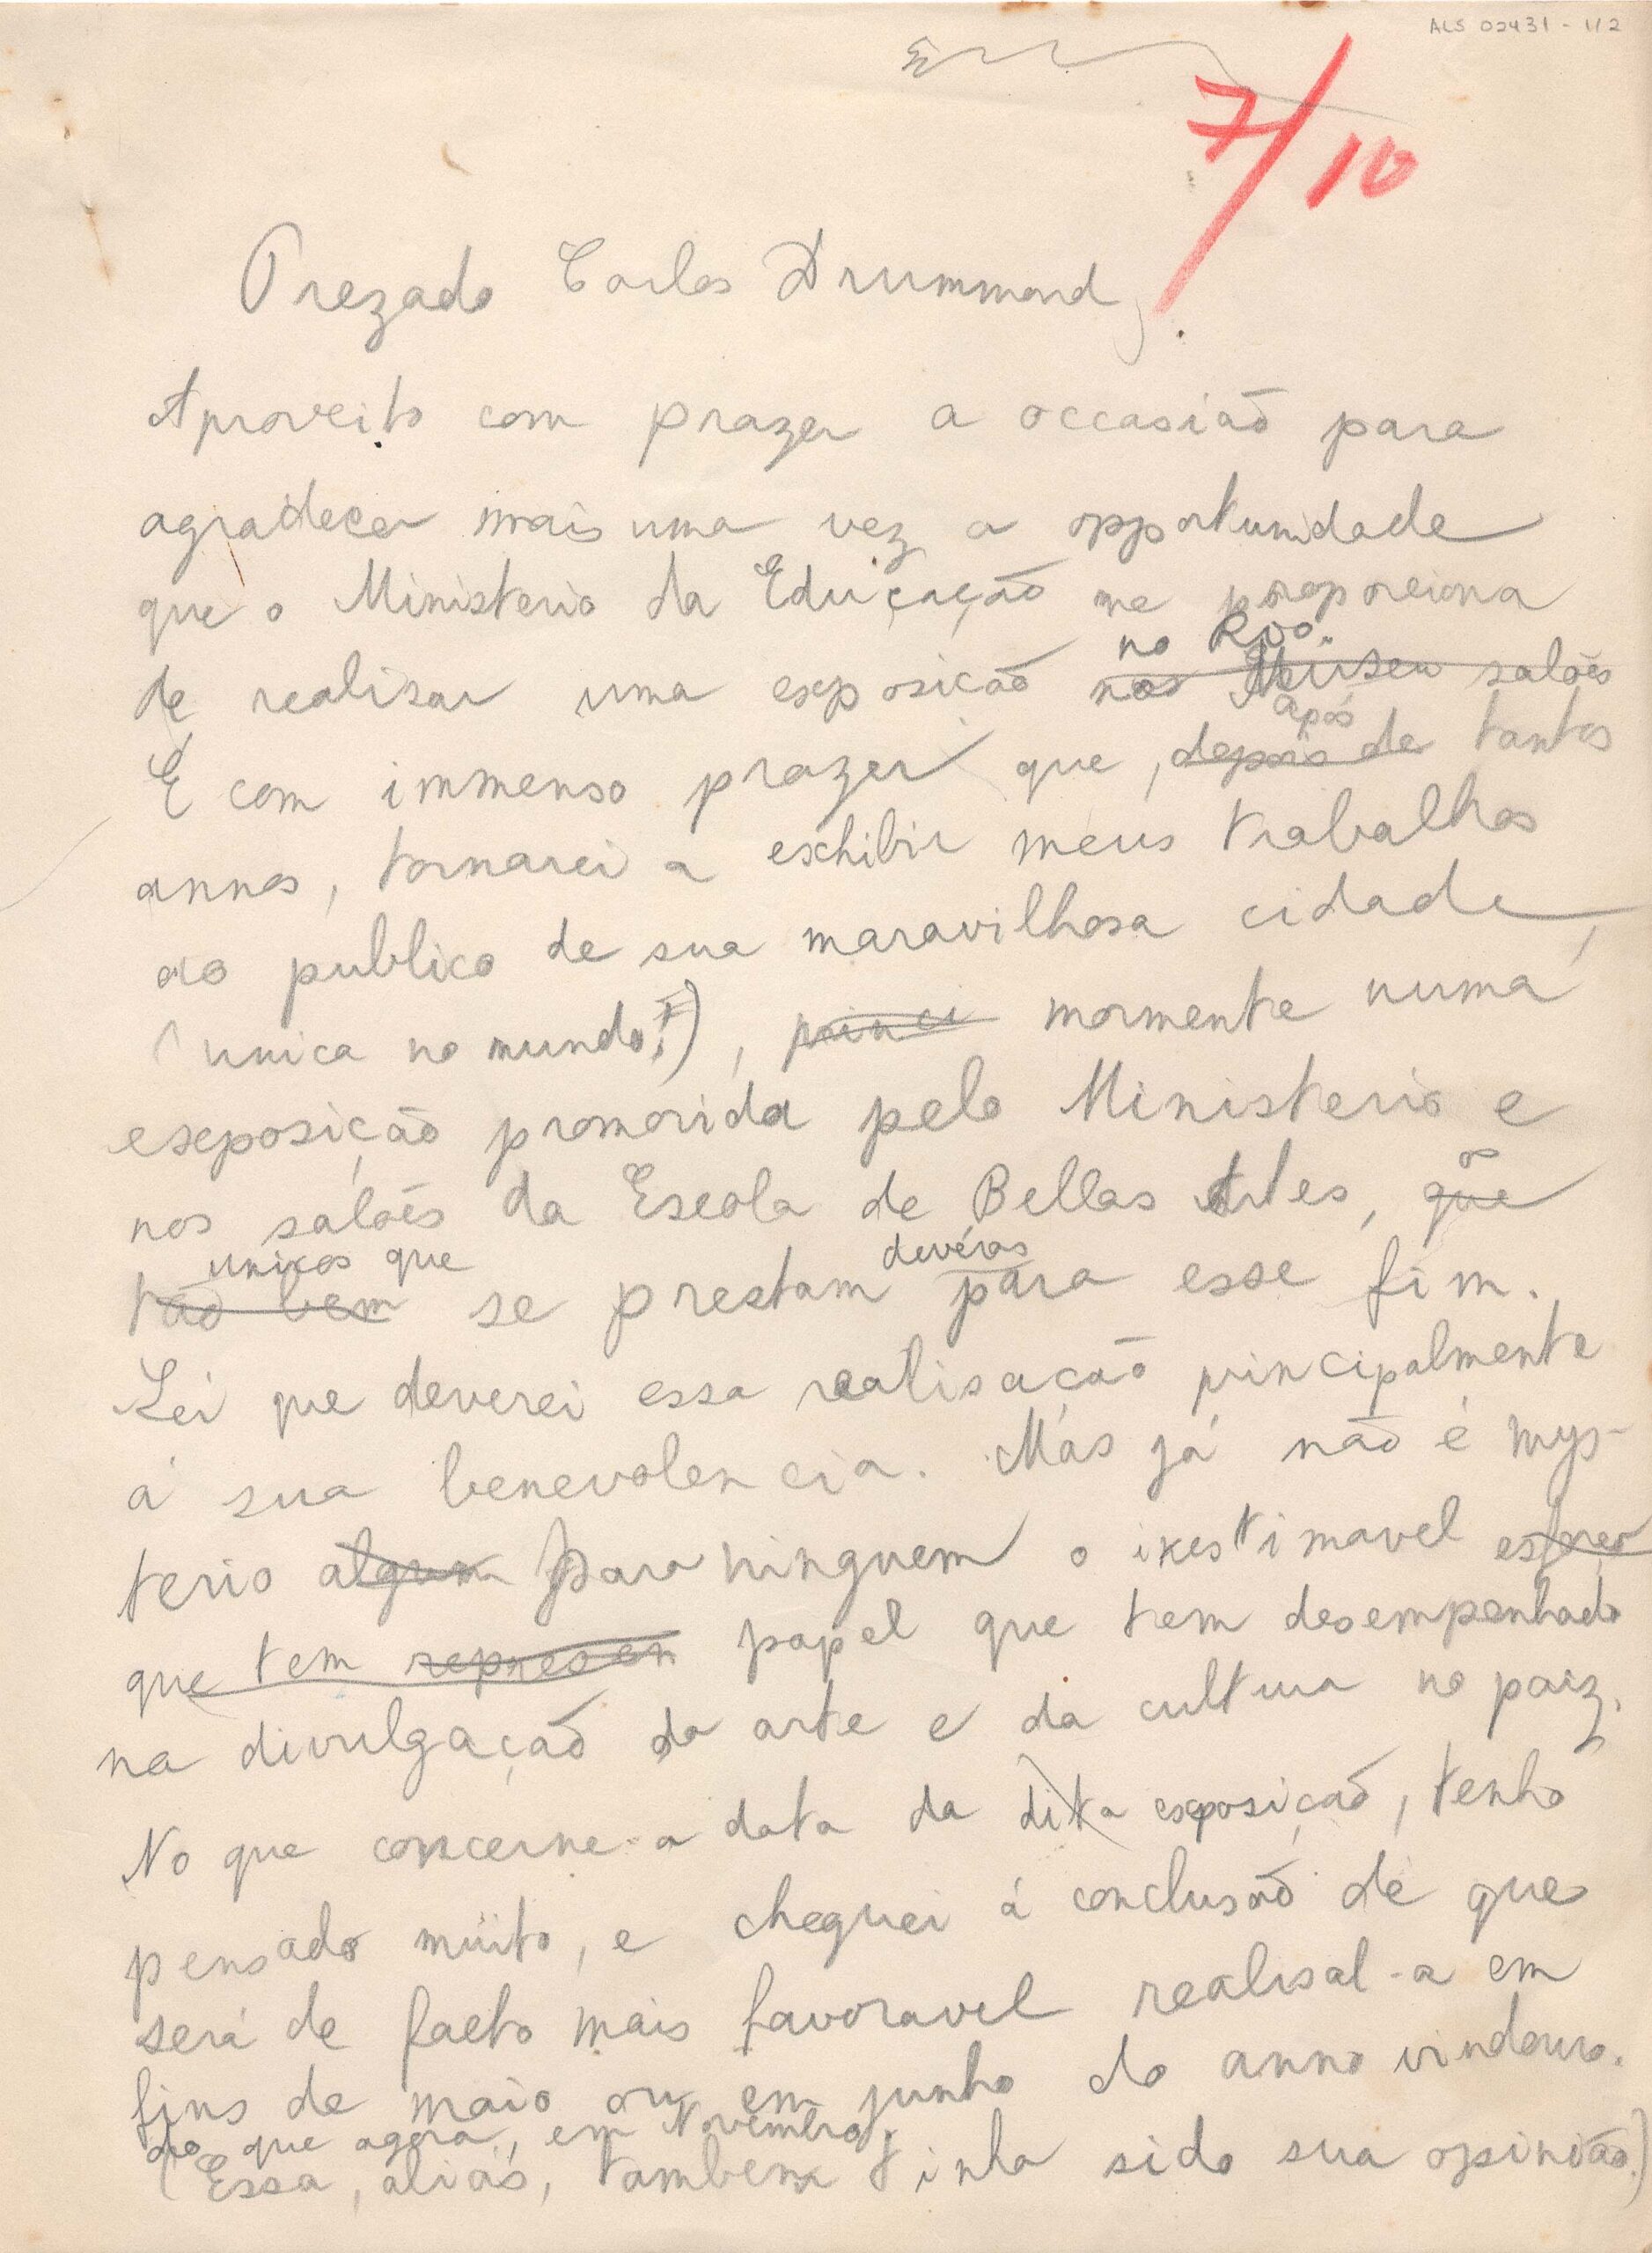 ALS 02431 - 1/2
7/10
Prezado Carlos Drummond,
Aproveito com prazer a occasião para
agradecer mais uma vez a opportunidade
que o Ministerio da Educação me proporciona
no Rio.
de realisar uma exposição nos Museu salões
após
É com immenso prazer que, depois de tantos
annos, tornarei a exhibir meus trabalhos
ao publico de sua maravilhosa cidade,
(unica no mundo!), princi mormente numa
exposição promovida pelo Ministerio e
os
nos salões da Escola de Bellas Artes, que
unicos que devéras
tão bem se prestam para esse fim.
Sei que deverei essa realisação principalmente
á sua benevolencia. Mas já não é mys-
terio algum para ninguem o inestimavel esfor
que tem represen papel que tem desempenhado
na divulgação da arte e da cultura no paiz.
No que concerne a data da dita exposição, tenho
pensado muito, e cheguei á conclusão de que
será de facto mais favoravel realisal-a em
fins de maio ou em junho do anno vindouro.
do que agora, em Novembro.
(Essa, aliás, tambem tinha sido sua opinião.)